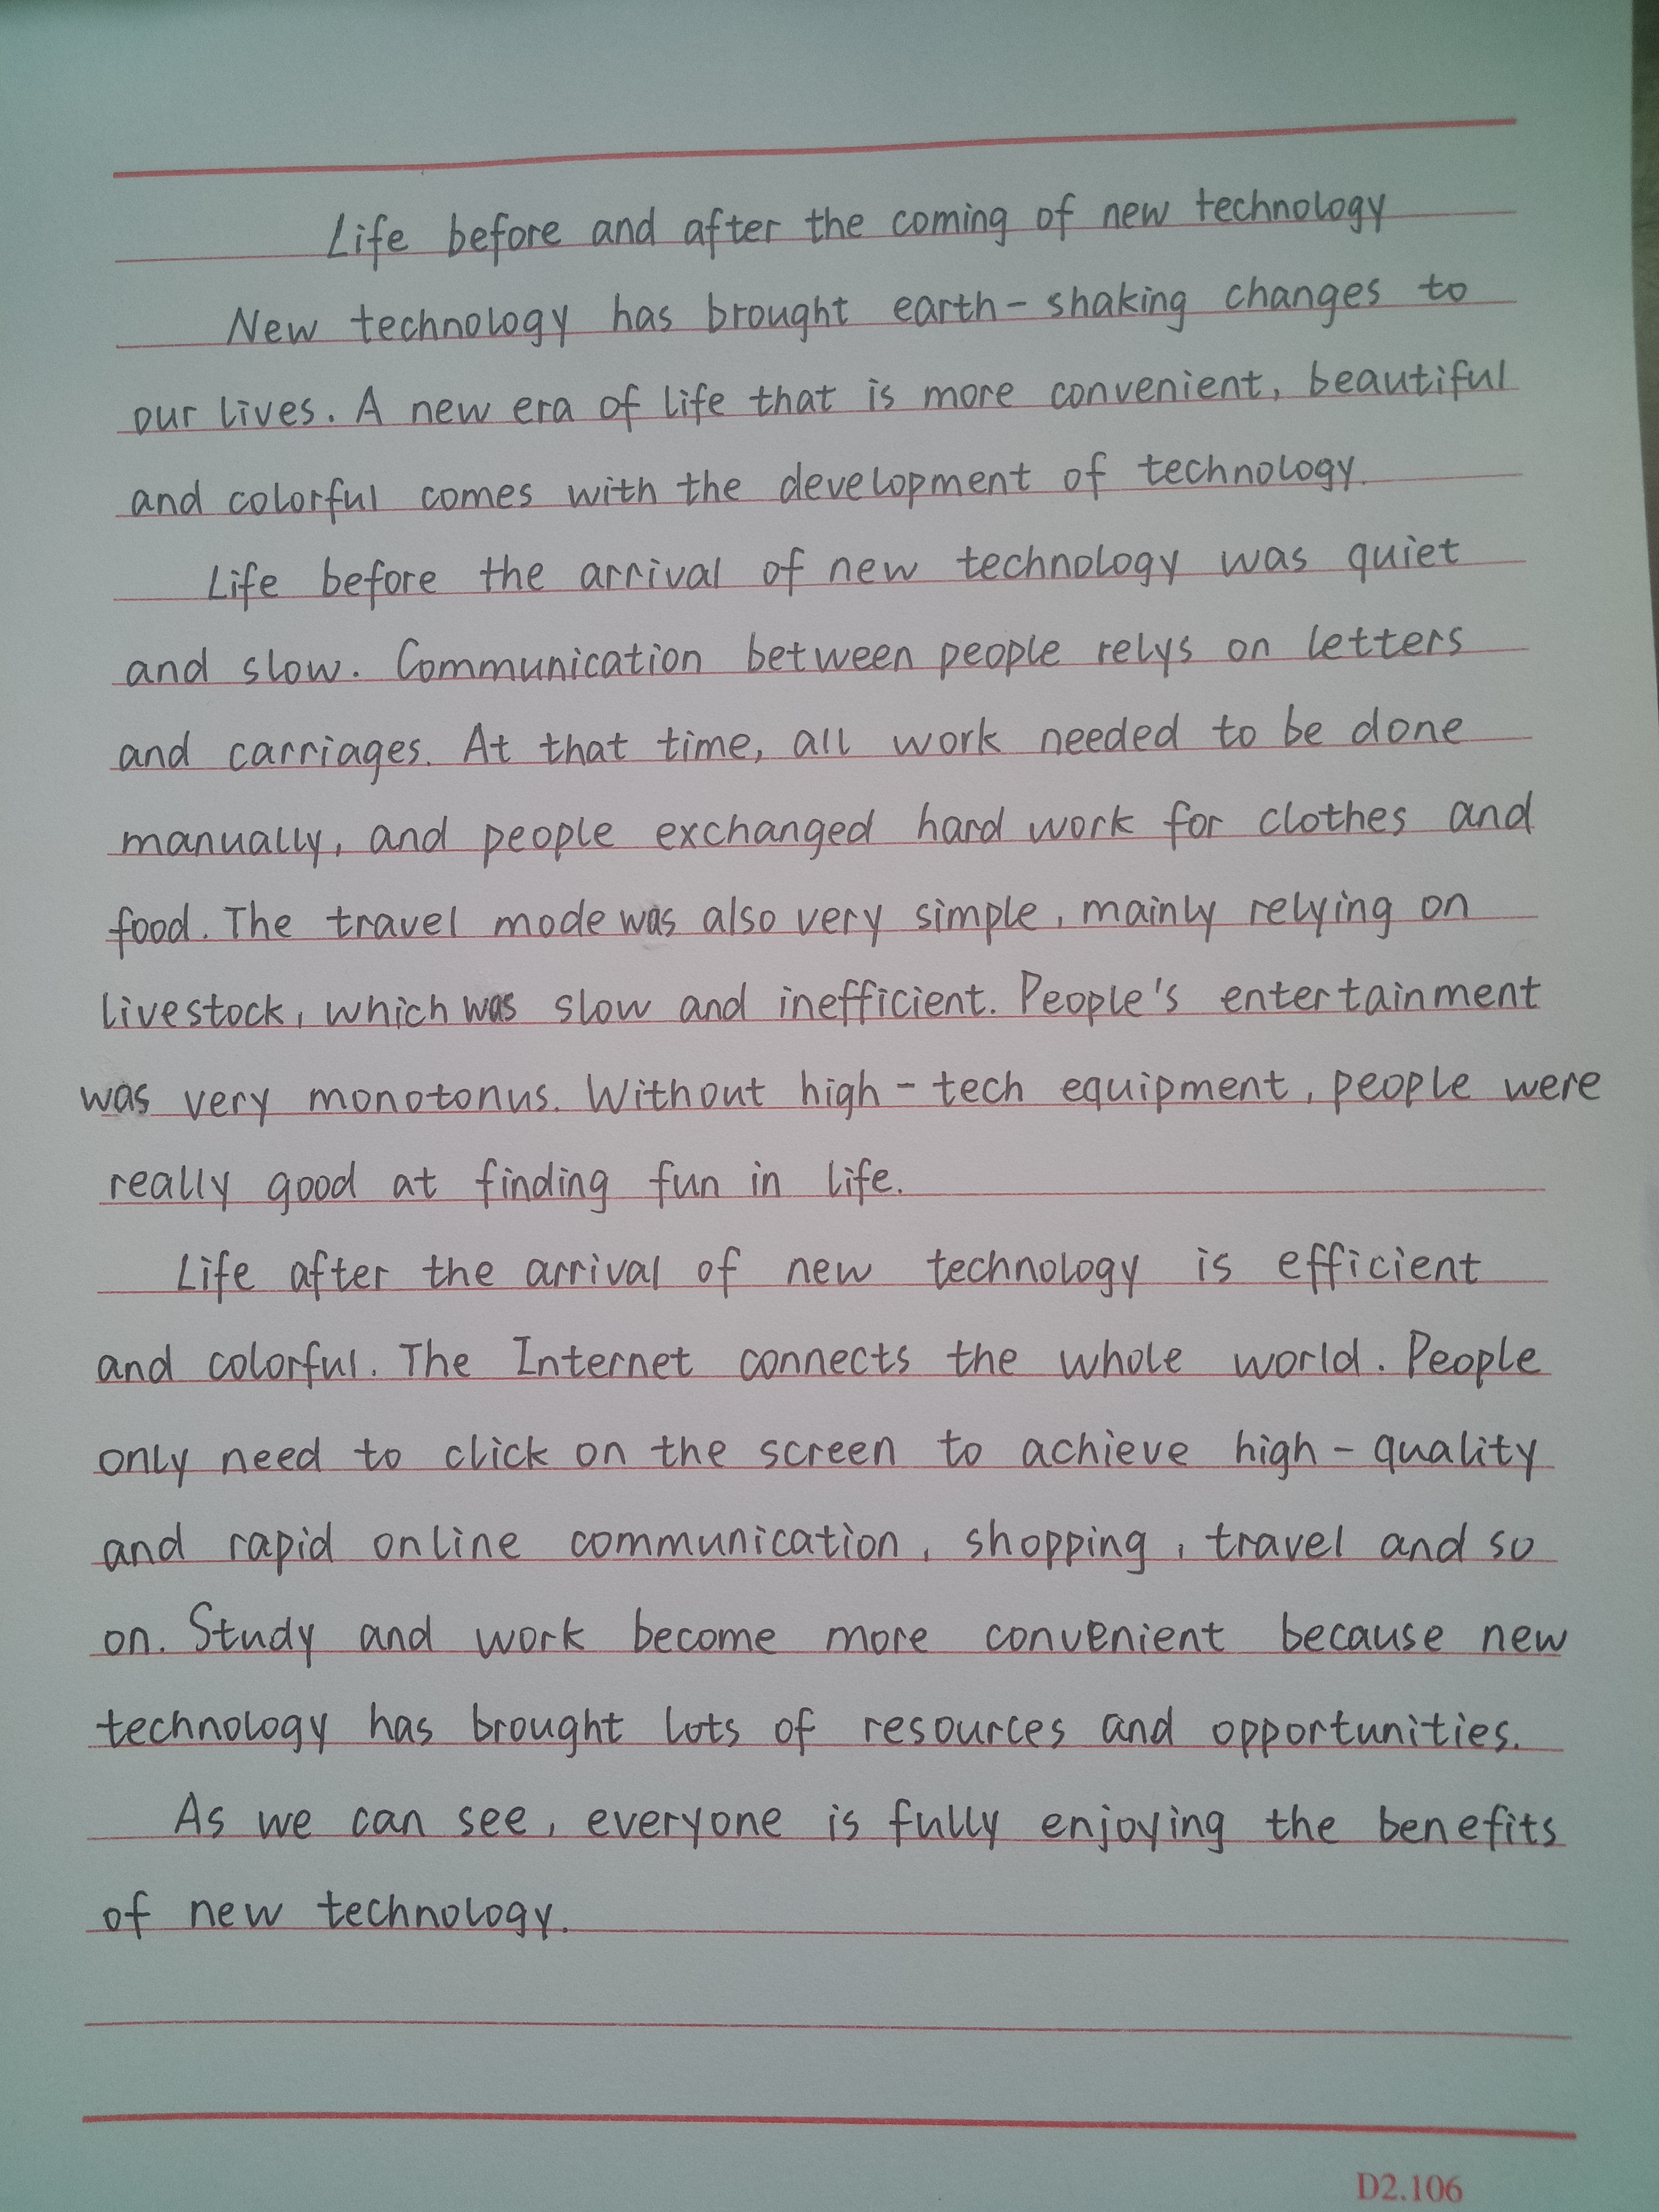 Life before and after the coming of new technology
New technology has brought earth-shaking changes to
our lives. A new era of life that is more convenient, beautiful
and colorful comes with the development of technology.
Life before the arrival of new technology was quiet
and slow. Communication between people relys on letters
and carriages. At that time, all work needed to be done
manually, and people exchanged hard work for clothes and
food. The travel mode was also very simple, mainly relying on
livestock, which was slow and inefficient. People's entertainment
was very monotonus. Without high-tech equipment, people were
really good at finding fun in life.
Life after the arrival of new technology is efficient
and colorful. The Internet connects the whole world. People
only need to click on the screen to achieve high-quality
and rapid online communication, shopping, travel and so
on. Study and work become more convenient because new
technology has brought lots of resources and opportunities.
As we can see, everyone is fully enjoying the benefits
of new technology.
D2.106